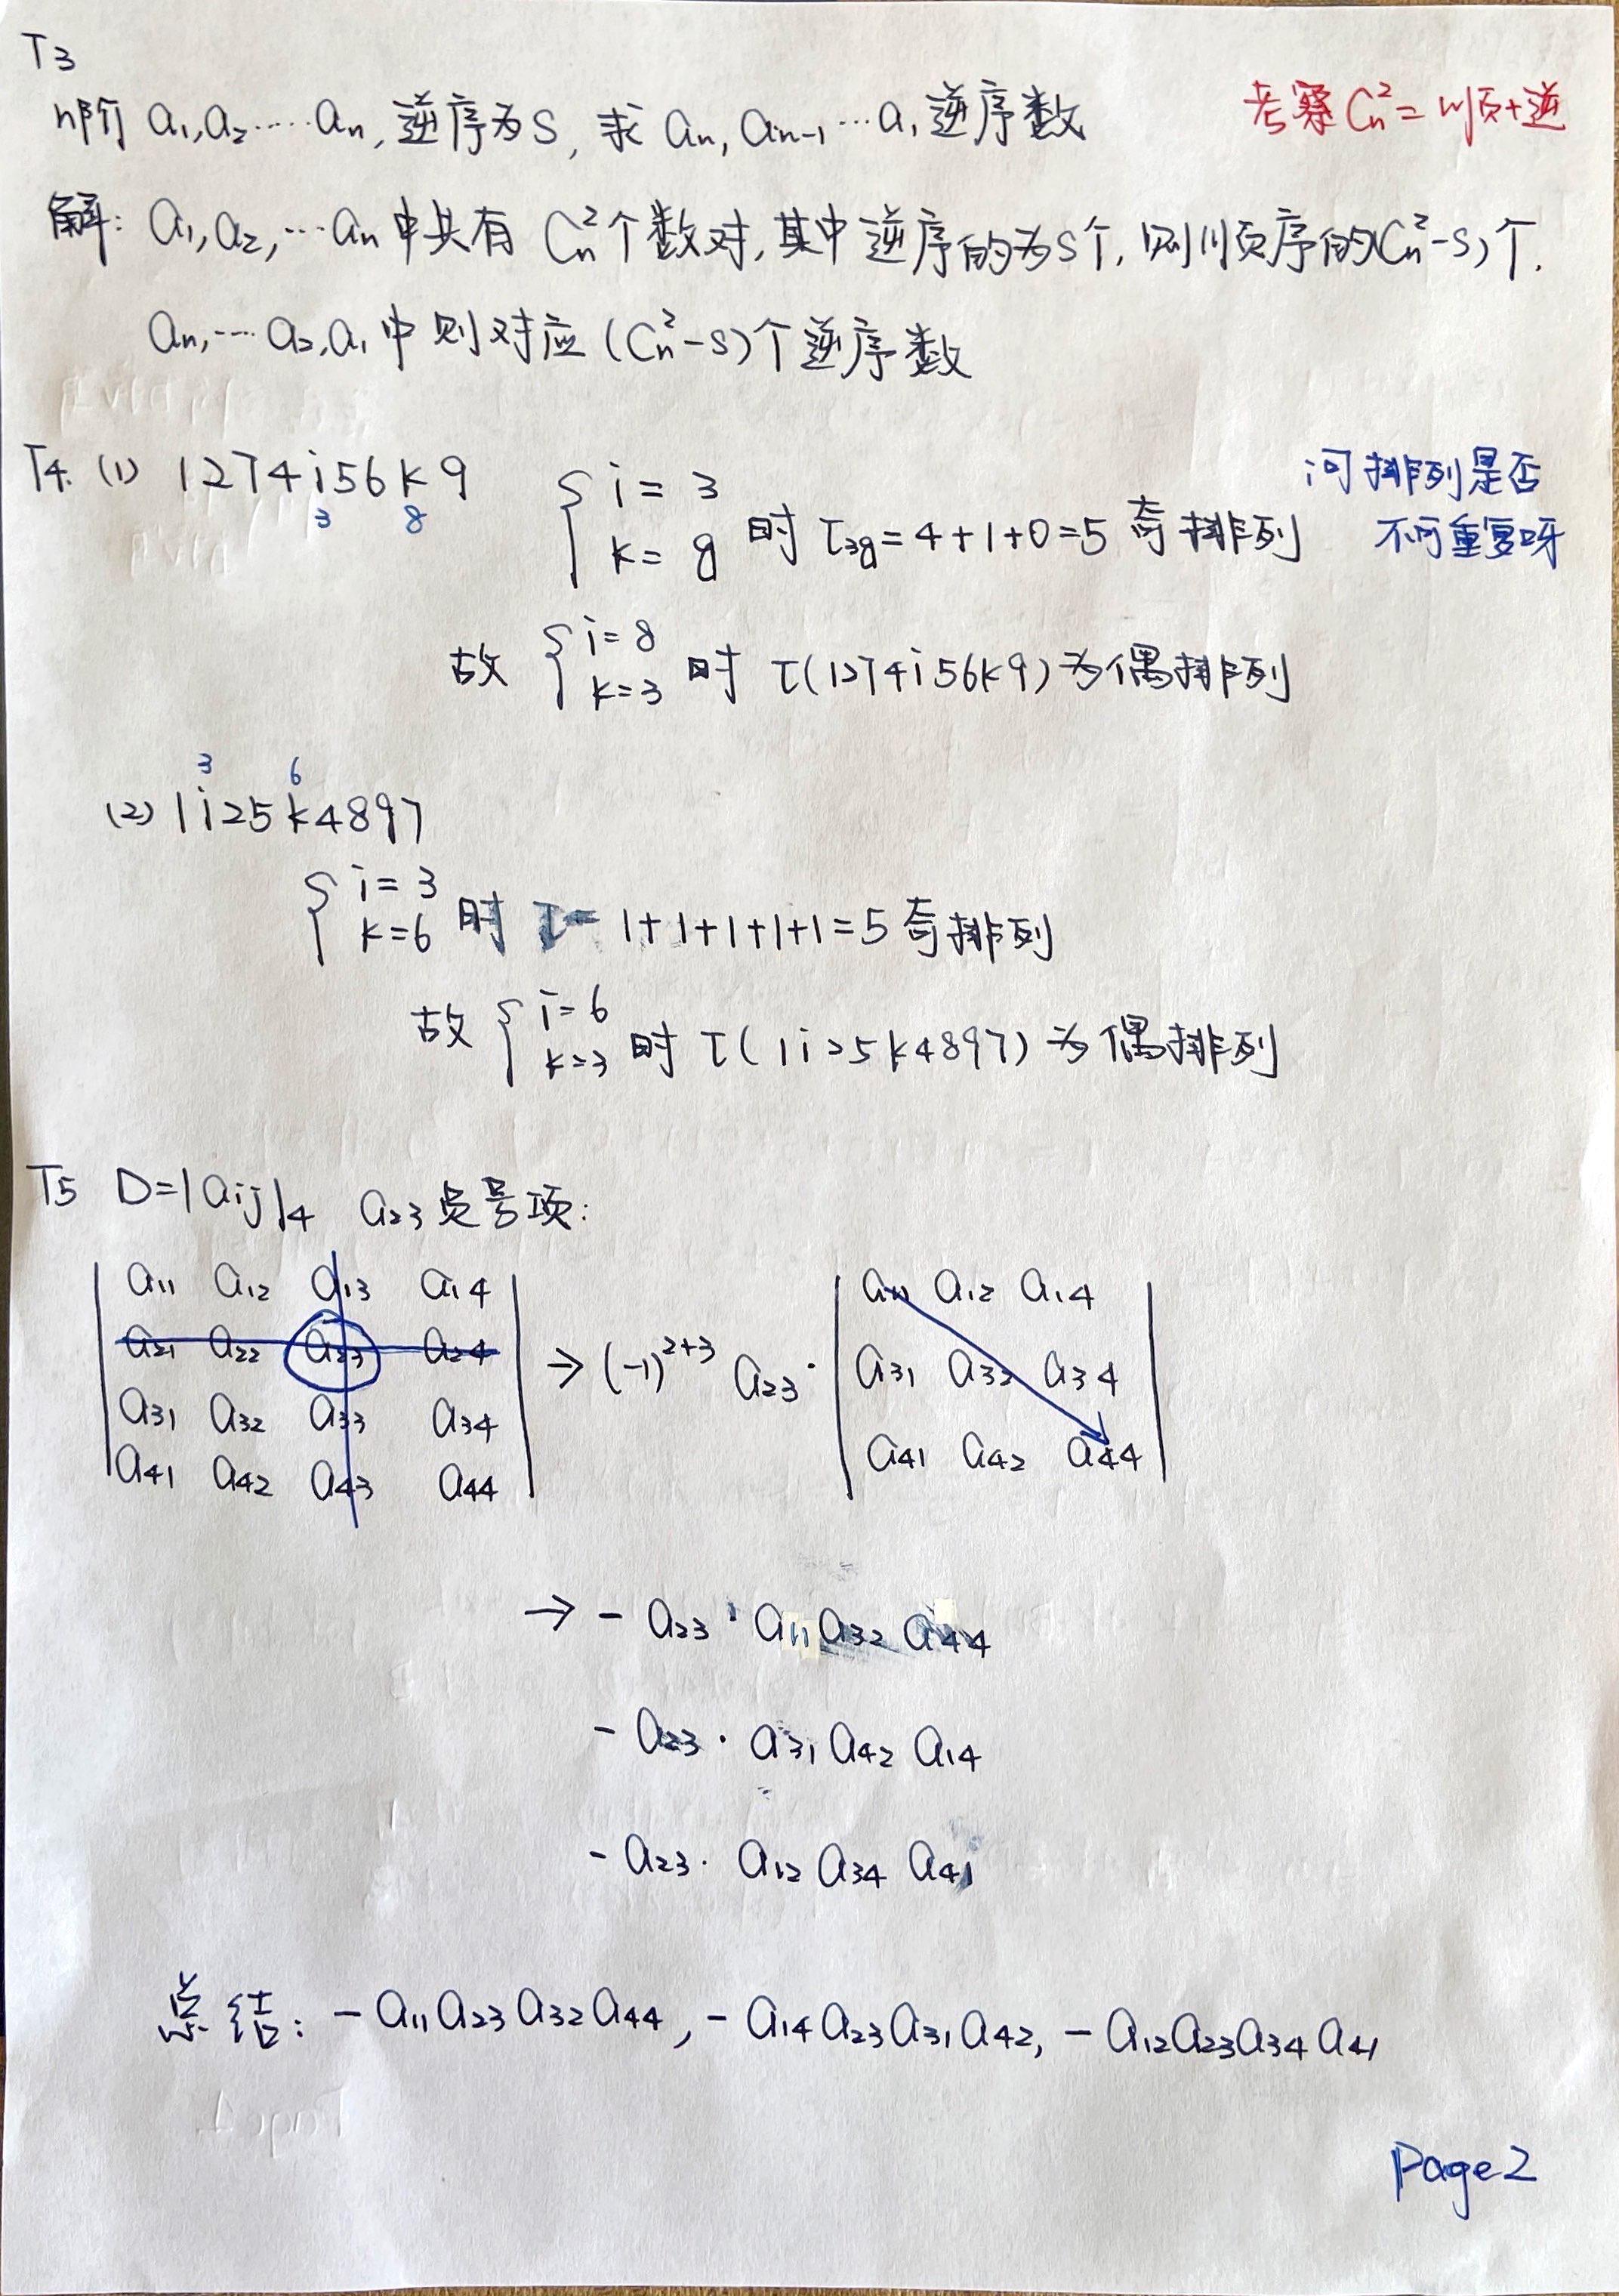 T3
n阶 a₁,a₂……aₙ,逆序为S,求 aₙ,aₙ₋₁…a₁逆序数
考察Cₙ²=顺+逆
解: a₁,a₂,…aₙ中共有 Cₙ²个数对,其中逆序的为S个,则顺序的(Cₙ²-S)个.
aₙ,…a₂,a₁中则对应(Cₙ²-S)个逆序数
T4. (1) 1274i56k9
3 8
{ i=3
k=8 时 τ₃₈=4+1+0=5 奇排列
问排列是否
不可重复呀
故 { i=8
k=3 时 τ(1274i56k9)为偶排列
3 6
(2) 1i25k4897
{ i=3
k=6 时 τ= 1+1+1+1+1=5奇排列
故 { i=6
k=3 时 τ(1i25k4897)为偶排列
T5 D=|aij|₄ a₂₃负号项:
a₁₁ a₁₂ a₁₃ a₁₄
a₂₁ a₂₂ a₂₃ a₂₄
a₃₁ a₃₂ a₃₃ a₃₄
a₄₁ a₄₂ a₄₃ a₄₄
→(-1)²⁺³ a₂₃·
a₁₁ a₁₂ a₁₄
a₃₁ a₃₂ a₃₄
a₄₁ a₄₂ a₄₄
→ - a₂₃·a₁₁a₃₂a₄₄
- a₂₃·a₃₁a₄₂a₁₄
- a₂₃·a₁₂a₃₄a₄₁
总结: -a₁₁a₂₃a₃₂a₄₄,-a₁₄a₂₃a₃₁a₄₂,-a₁₂a₂₃a₃₄a₄₁
Page2